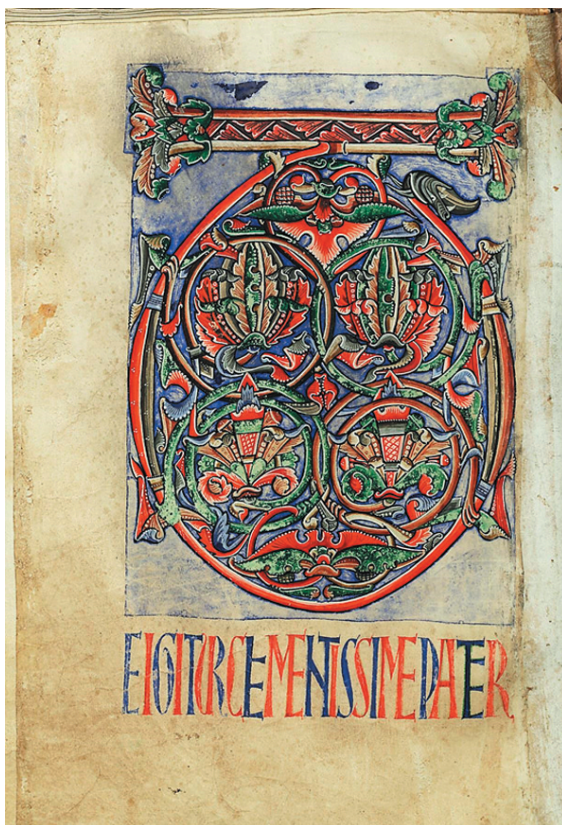 T
EIGITURCLEMENTISSIMEPATER